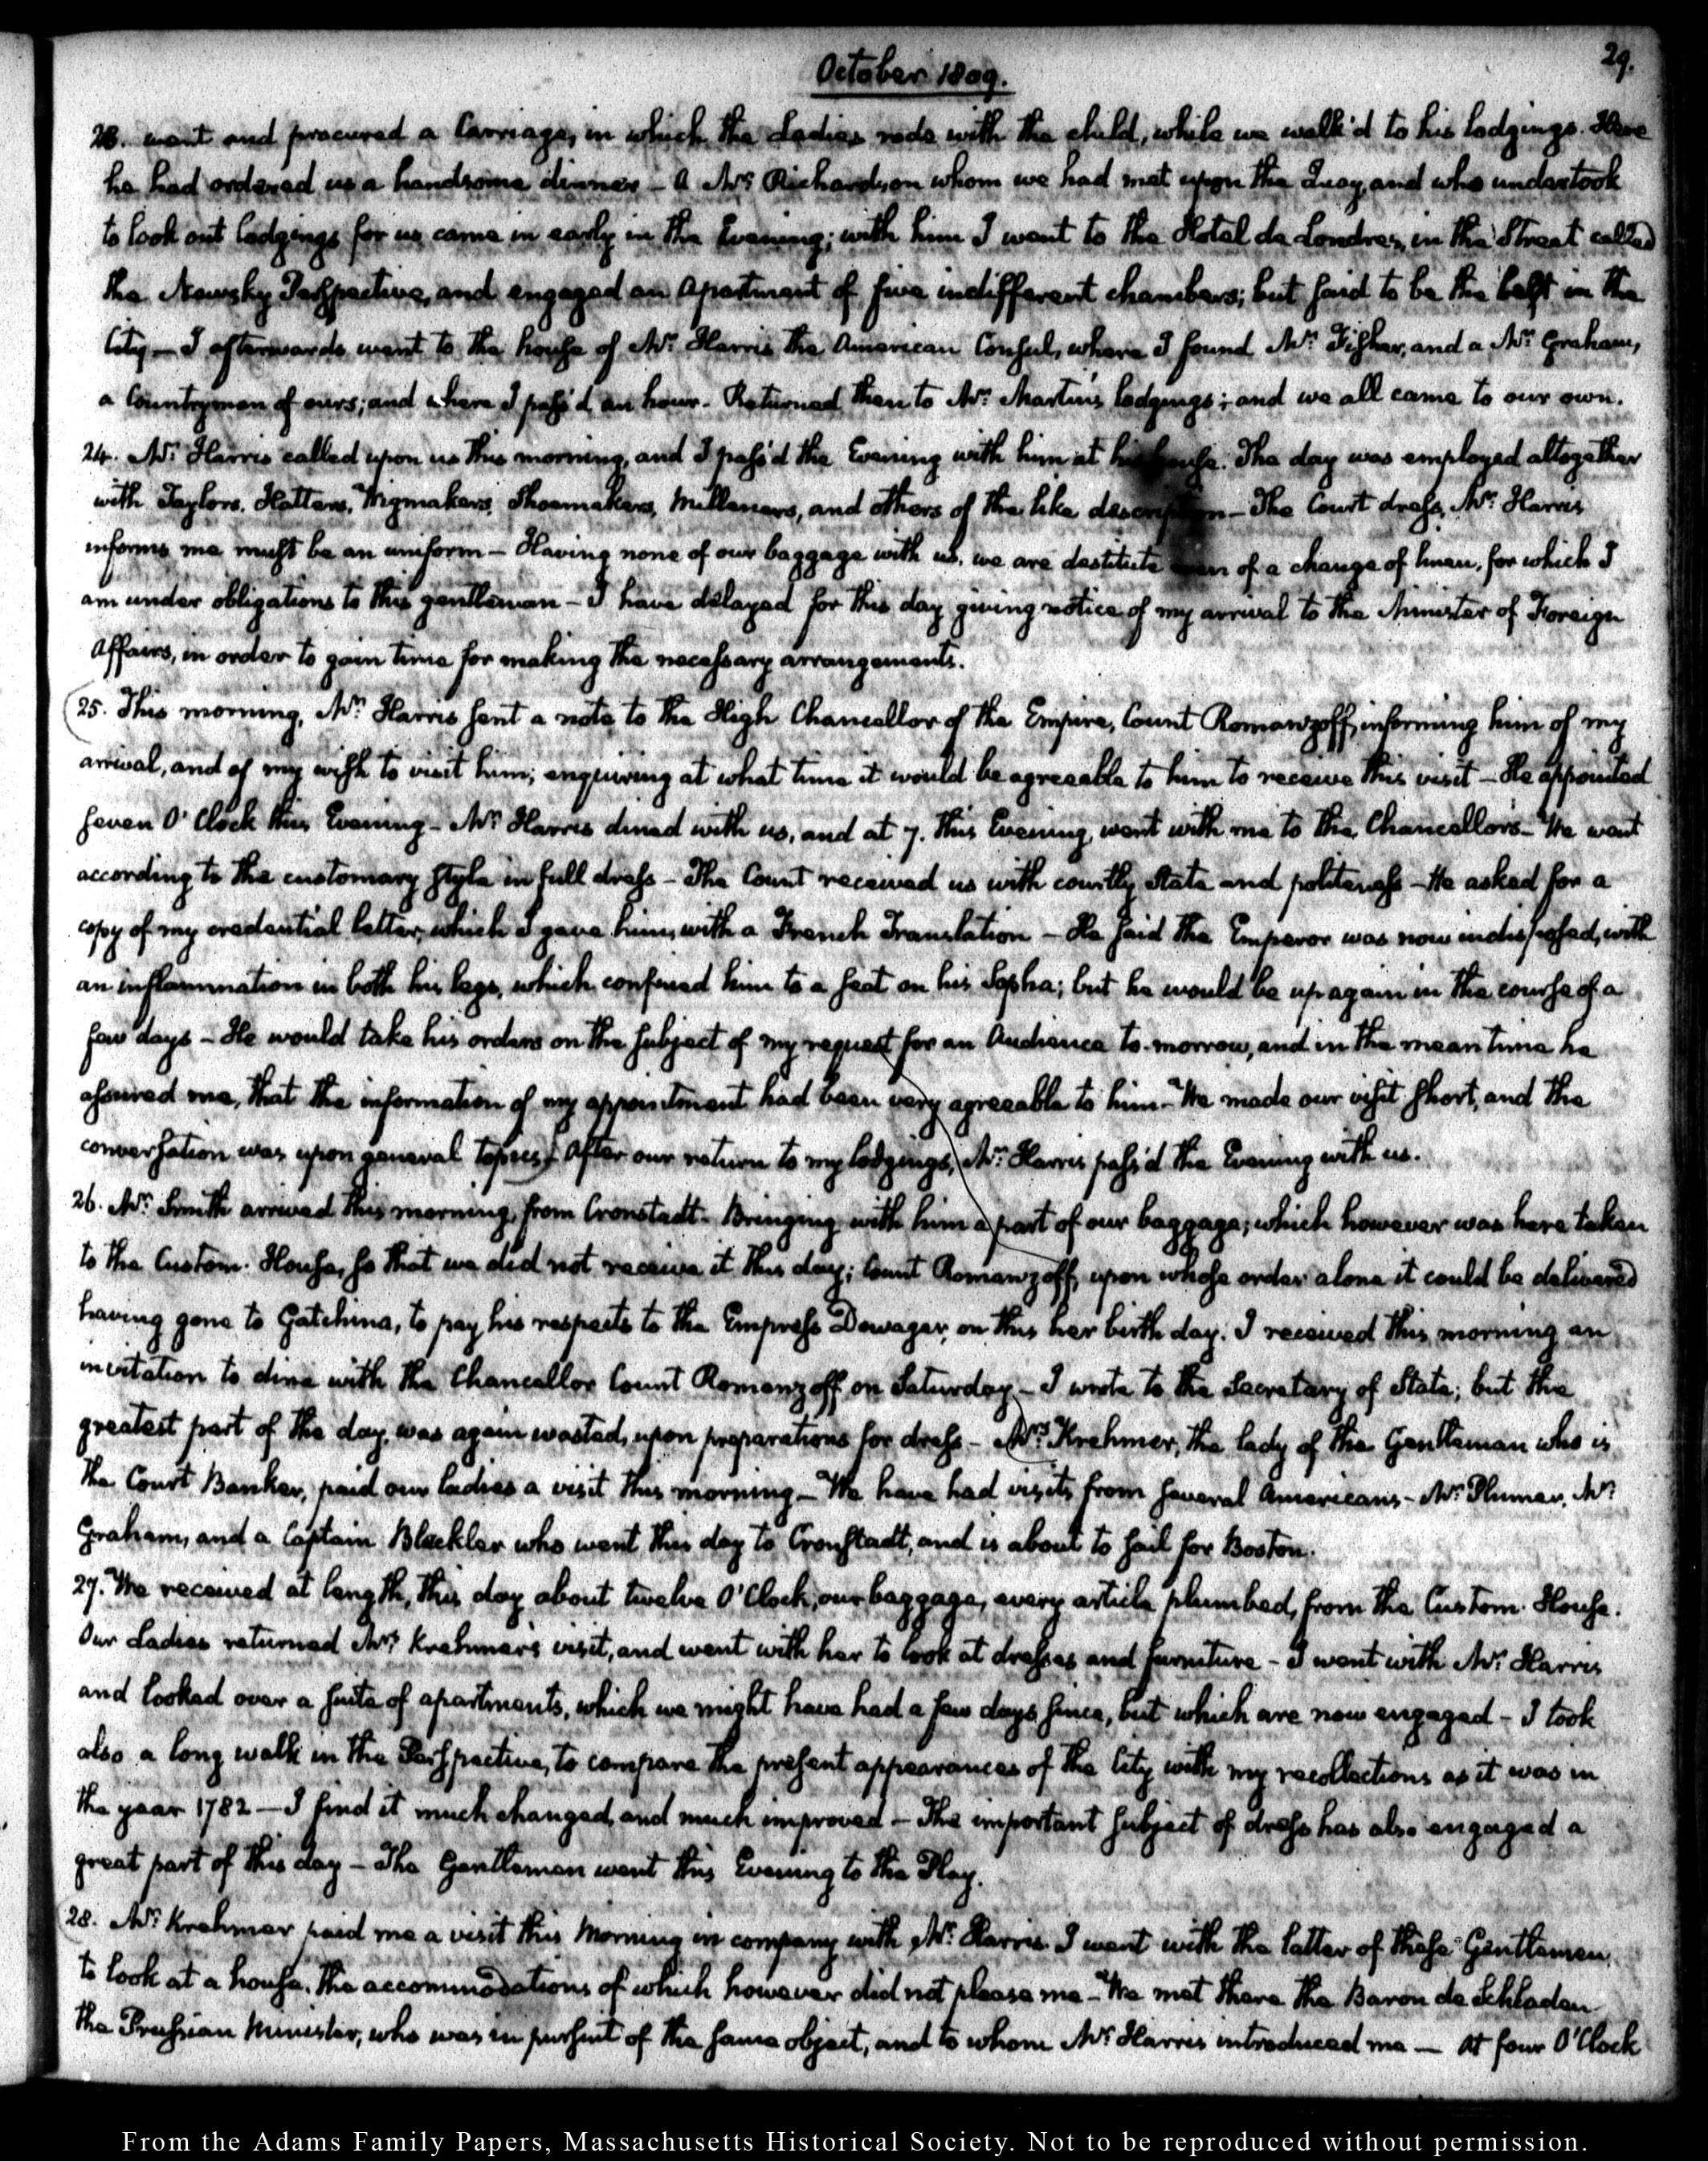 October 1809.
29.
23. went and procured a Carriage, in which the Ladies rode with the child, while we walk'd to his lodgings. Here
he had ordered us a handsome dinner — A Mr. Richardson whom we had met upon the Quay, and who undertook
to look out lodgings for us came in early in the Evening; with him I went to the Hotel de Londres, in the Street called
the Newsky Perspective, and engaged an apartment of five indifferent chambers; but said to be the best in the
City — I afterwards went to the house of Mr. Harris the American Consul, where I found Mr. Fisher, and a Mr. Graham,
a Countryman of ours; and where I pass'd an hour. Returned then to Mr. Martin's lodgings; and we all came to our own.
24. Mr. Harris called upon us this morning, and I pass'd the Evening with him at his house. The day was employed altogether
with Taylors, Hatters, Wigmakers, Shoemakers, Milleners, and others of the like description — The Court dress, Mr. Harris
informs me must be an uniform — Having none of our baggage with us, we are destitute even of a change of linen, for which I
am under obligations to this gentleman — I have delayed for this day giving notice of my arrival to the Minister of Foreign
Affairs, in order to gain time for making the necessary arrangements.
25. This morning, Mr. Harris sent a note to the High Chancellor of the Empire, Count Romanzoff, informing him of my
arrival, and of my wish to visit him; enquiring at what time it would be agreeable to him to receive this visit — He appointed
seven O'Clock this Evening — Mr. Harris dined with us, and at 7. this Evening, went with me to the Chancellor's — We went
according to the customary style in full dress — The Count received us with courtly State and politeness — He asked for a
copy of my credential letter, which I gave him, with a French Translation — He said the Emperor was now indisposed, with
an inflammation in both his legs, which confined him to a seat on his Sopha; but he would be up again in the course of a
few days — He would take his orders on the subject of my request for an Audience to-morrow, and in the mean time he
assured me, that the information of my appointment had been very agreeable to him — We made our visit short, and the
conversation was upon general topics. After our return to my lodgings, Mr. Harris pass'd the Evening with us.
26. Mr. Smith arrived this morning, from Cronstadt — Bringing with him a part of our baggage; which however was here taken
to the Custom-House, so that we did not receive it this day; Count Romanzoff, upon whose order alone it could be delivered
having gone to Gatchina, to pay his respects to the Empress Dowager, on this her birth day. I received this morning an
invitation to dine with the Chancellor Count Romanzoff on Saturday — I wrote to the Secretary of State; but the
greatest part of the day, was again wasted, upon preparations for dress — Mrs. Krehmer, the lady of the Gentleman who is
the Court Banker, paid our ladies a visit this morning — We have had visits from several Americans — Mr. Plumer, Mr.
Graham, and a Captain Blackler who went this day to Cronstadt, and is about to sail for Boston.
27. We received at length, this day about twelve O'Clock, our baggage, every article plumbed, from the Custom-House.
Our Ladies returned Mrs. Krehmer's visit, and went with her to look at dresses and furniture — I went with Mr. Harris
and looked over a suite of apartments, which we might have had a few days since, but which are now engaged — I took
also a long walk in the Perspective, to compare the present appearances of the City with my recollections as it was in
the year 1782 — I find it much changed, and much improved — The important subject of dress has also engaged a
great part of this day — The Gentlemen went this Evening to the Play.
28. Mr. Krehmer paid me a visit this Morning in company with Mr. Harris. I went with the latter of these Gentlemen,
to look at a house, the accommodations of which however did not please me — We met there the Baron de Schladen
the Prussian Minister, who was in pursuit of the same object, and to whom Mr. Harris introduced me — At four O'Clock
From the Adams Family Papers, Massachusetts Historical Society. Not to be reproduced without permission.